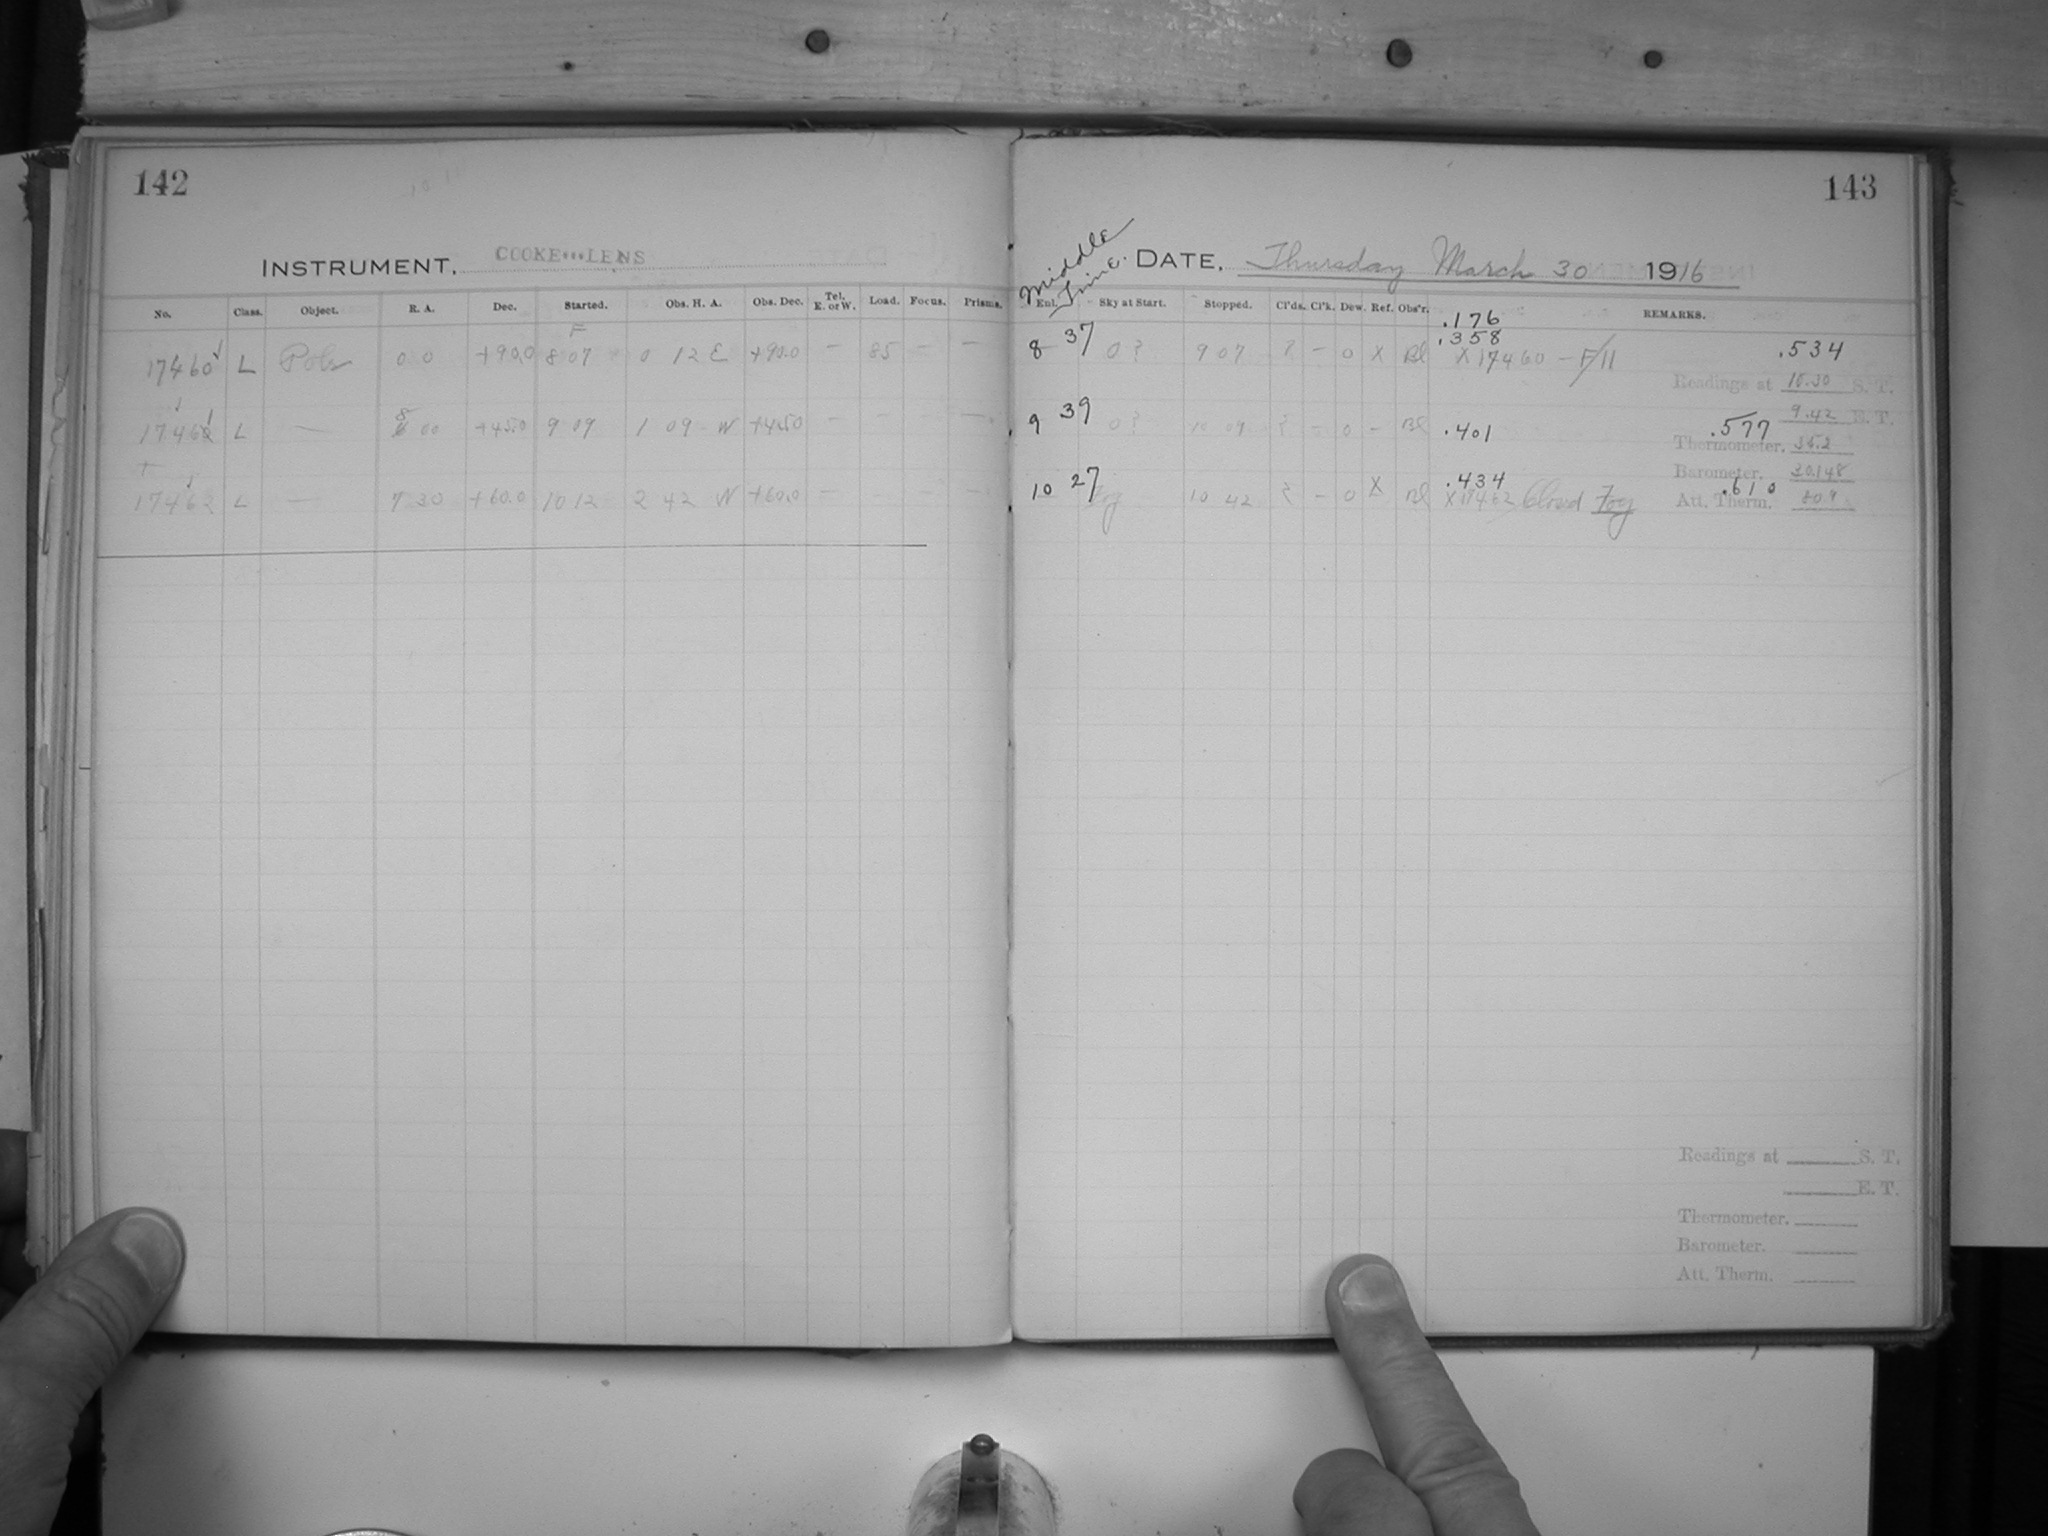 142
INSTRUMENT, COOKE LENS
No. Class. Object. R. A. Dec. Started. Obs. H. A. Obs. Dec. Tel. E. or W. Load. Focus. Prisms.
F
17460 L Pole 0 0 +90.0 8 07 0 12 E +90.0 – 85 – –
L — 00 +45.0 9 09 1 09 W +45.0 – – – –
17462 L — 7 30 +60.0 10 12 2 42 W +60.0 – – – –
143
Middle Time.
DATE, Thursday March 30 1916
Enl. Sky at Start. Stopped. Cl'ds. Cl'k. Dew. Ref. Obs'r. REMARKS.
.176
.358
8 37 0? 9 07 ? – 0 X Bl X17460 – F/11 .534
Readings at 10.30 S. T.
9.42 E. T.
9 39 0? 10 09 ? – 0 – Bl .401 .577
Thermometer. 35.2
Barometer. 30.148
.434 .610
10 27 Fog 10 42 ? – 0 X Bl X17462 Cloud Fog
Att. Therm.
Readings at S. T.
E. T.
Thermometer.
Barometer.
Att. Therm.